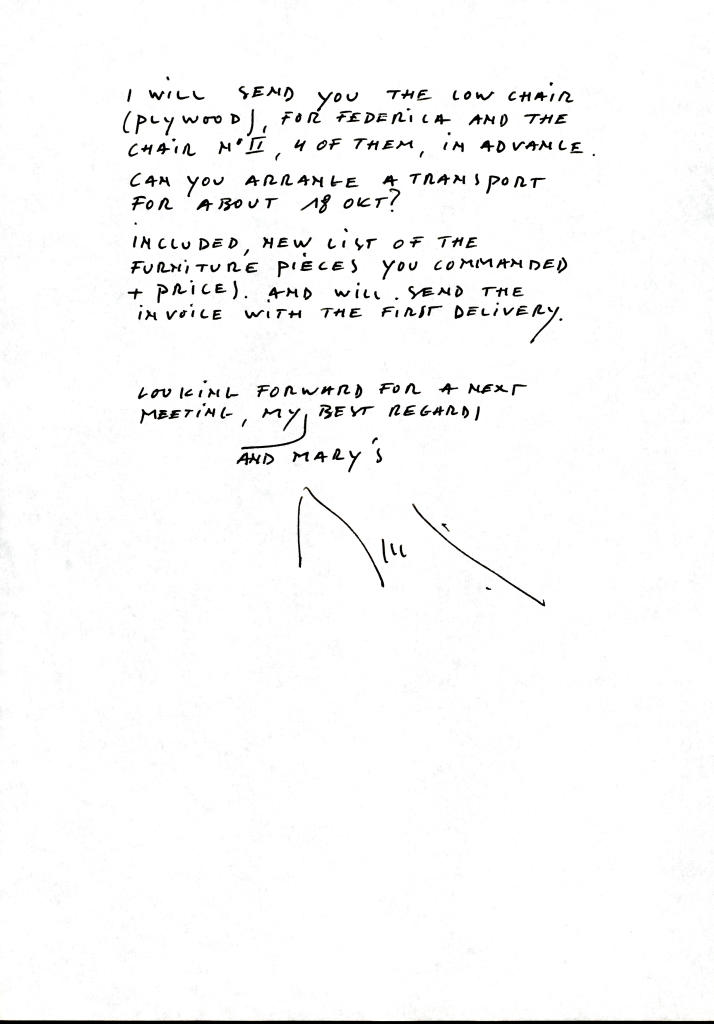 I WILL SEND YOU THE LOW CHAIR
(PLYWOOD), FOR FEDERICA AND THE
CHAIR N° II, 4 OF THEM, IN ADVANCE.
CAN YOU ARRANGE A TRANSPORT
FOR ABOUT 18 OKT?
INCLUDED, NEW LIST OF THE
FURNITURE PIECES YOU COMMANDED
+ PRICES. AND WILL SEND THE
INVOICE WITH THE FIRST DELIVERY.
LOOKING FORWARD FOR A NEXT
MEETING, MY BEST REGARDS
AND MARY'S